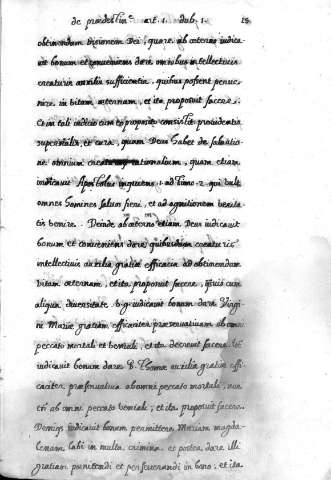 de prædestin.e art. 1. dub. 1.
obtinendam visionem Dei, quare ab æterno iudica-
uit bonum et conueniens dare omnibus intellectiuis
creaturis auxilia sufficientia, quibus possent perue-
nire in vitam æternam, et ita proposuit facere.
Et in tali iudicio cum proposito consistit prouidentia
supernatalis, et cura, quam Deus habet de saluatio-
ne omnium rationalium, quam etiam
indicauit Apostolus inquiens 1. ad Timo. 2. qui vult
omnes homines saluos fieri, et ad agnitionem verita-
tis venire. Deinde ab æterno etiam Deus iudicauit
bonum et conueniens dare quibusdam creaturis
intellectiuis auxilia gratiæ efficacia ad obtinendam
vitam æternam, et ita proposuit facere, cum
aliqua diuersitate. v. g. iudicauit bonum dare Virgi-
ni Mariæ gratiam efficaciter præseruatiuam ab omni
peccato mortali et veniali, et ita decreuit facere.
iudicauit bonum dare D. Thomæ auxilia gratiæ effi-
caciter præseruatiua ab omni peccato mortali, non
tn ab omni peccato veniali, et ita proposuit facere.
Denique iudicauit bonum permittere Mariam Magda-
lenam labi in multa crimina et postea dare illi
gratiam pœnitendi et perseuerandi in bono, et ita